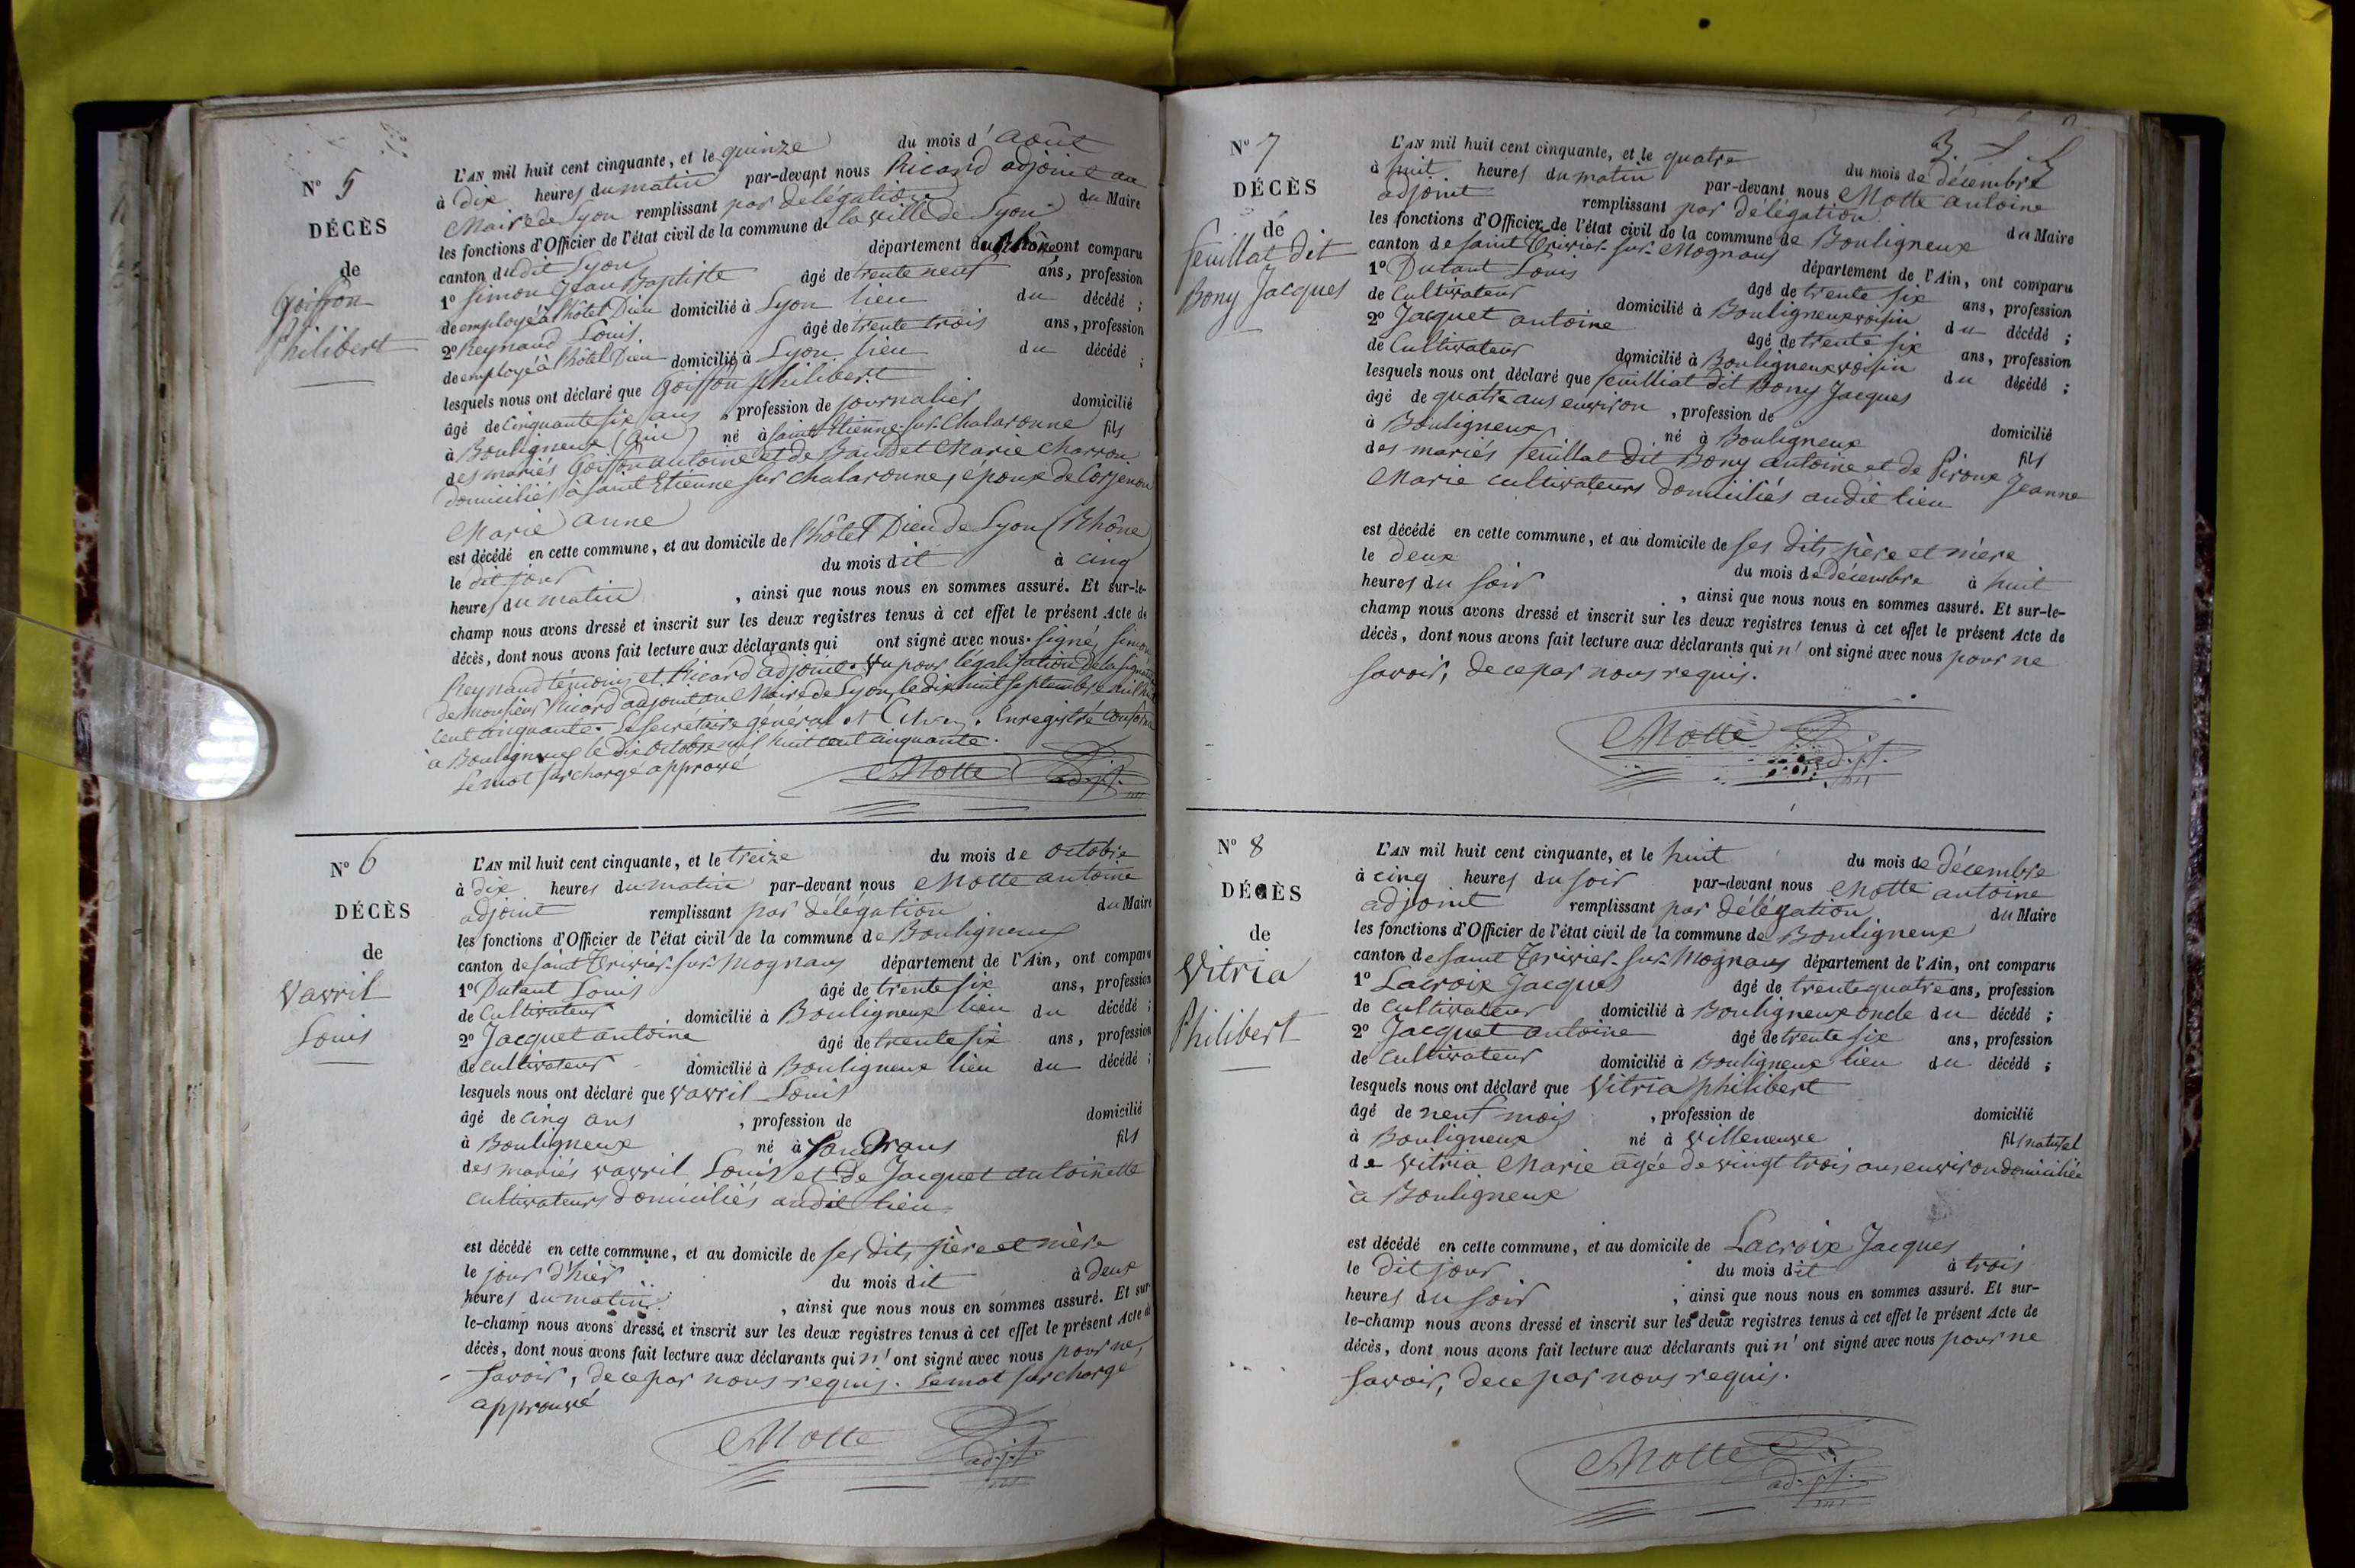 N° 5
DÉCÈS
de
Goiffon
Philibert
L'AN mil huit cent cinquante, et le quinze du mois d'août
à dix heures du matin par-devant nous Ricard adjoint au
Maire de Lyon remplissant par délégation du Maire
les fonctions d'Officier de l'état civil de la commune de la ville de Lyon
canton du dit Lyon département du Rhône ont comparu
1° Simon Jean Baptiste âgé de trente neuf ans, profession
de employé à l'hôtel Dieu domicilié à Lyon lieu du décédé ;
2° Reynaud Louis âgé de trente trois ans, profession
de employé à l'hôtel Dieu domicilié à Lyon lieu du décédé ;
lesquels nous ont déclaré que Goiffon Philibert
âgé de cinquante six ans, profession de journalier domicilié
à Bouligneux (Ain) né à Saint Etienne-sur-Chalaronne fils
des mariés Goiffon antoine et de Baudet Marie Charron
domiciliés à Saint Etienne sur Chalaronne, époux de Corjenon
Marie Anne
est décédé en cette commune, et au domicile de l'hôtel Dieu de Lyon (Rhône)
le dit jour du mois dit à cinq
heures du matin, ainsi que nous nous en sommes assuré. Et sur-le-
champ nous avons dressé et inscrit sur les deux registres tenus à cet effet le présent Acte de
décès, dont nous avons fait lecture aux déclarants qui ont signé avec nous. signé, Simon
Reynaud témoins et Ricard adjoint. Vu pour légalisation de la signature
de Monsieur Ricard adjoint au Maire de Lyon, le dix huit septembre mil huit
cent cinquante. Le Secrétaire général. Enregistré conforme
à Bouligneux le dix octobre mil huit cent cinquante.
Le mot surchargé approuvé
Motte adjt.
N° 6
DÉCÈS
de
Vavril
Louis
L'AN mil huit cent cinquante, et le treize du mois de octobre
à dix heures du matin par-devant nous Motte antoine
adjoint remplissant par délégation du Maire
les fonctions d'Officier de l'état civil de la commune de Bouligneux
canton de Saint Trivier-sur-Mognans département de l'Ain, ont comparu
1° Dutant Louis âgé de trente six ans, profession
de Cultivateur domicilié à Bouligneux lieu du décédé ;
2° Jacquet antoine âgé de trente six ans, profession
de cultivateur domicilié à Bouligneux lieu du décédé ;
lesquels nous ont déclaré que Vavril Louis
âgé de cinq ans, profession de domicilié
à Bouligneux né à Sandrans fils
des mariés Vavril Louis et de Jacquet antoinette
cultivateurs domiciliés audit lieu
est décédé en cette commune, et au domicile de ses dits père et mère
le jour d'hier du mois dit à deux
heures du matin, ainsi que nous nous en sommes assuré. Et sur-
le-champ nous avons dressé et inscrit sur les deux registres tenus à cet effet le présent Acte de
décès, dont nous avons fait lecture aux déclarants qui n'ont signé avec nous pour ne
savoir, de ce par nous requis. Le mot surchargé
approuvé
Motte adjt.
N° 7
DÉCÈS
de
feuillat dit
Bony Jacques
L'AN mil huit cent cinquante, et le quatre du mois de décembre
à huit heures du matin par-devant nous Motte antoine
adjoint remplissant par délégation du Maire
les fonctions d'Officier de l'état civil de la commune de Bouligneux
canton de Saint Trivier-sur-Mognans département de l'Ain, ont comparu
1° Dutant Louis âgé de trente six ans, profession
de Cultivateur domicilié à Bouligneux voisin du décédé ;
2° Jacquet antoine âgé de trente six ans, profession
de Cultivateur domicilié à Bouligneux voisin du décédé ;
lesquels nous ont déclaré que feuilliat dit Bony Jacques
âgé de quatre ans environ, profession de domicilié
à Bouligneux né à Bouligneux fils
des mariés feuillat dit Bony antoine et de Piroux Jeanne
Marie cultivateurs domiciliés audit lieu
est décédé en cette commune, et au domicile de ses dits père et mère
le deux du mois de décembre à huit
heures du soir, ainsi que nous nous en sommes assuré. Et sur-le-
champ nous avons dressé et inscrit sur les deux registres tenus à cet effet le présent Acte de
décès, dont nous avons fait lecture aux déclarants qui n'ont signé avec nous pour ne
savoir, de ce par nous requis.
Motte adjt.
N° 8
DÉCÈS
de
Vitria
Philibert
L'AN mil huit cent cinquante, et le huit du mois de décembre
à cinq heures du soir par-devant nous Motte antoine
adjoint remplissant par délégation du Maire
les fonctions d'Officier de l'état civil de la commune de Bouligneux
canton de Saint Trivier-sur-Mognans département de l'Ain, ont comparu
1° Lacroix Jacques âgé de trente quatre ans, profession
de cultivateur domicilié à Bouligneux oncle du décédé ;
2° Jacquet antoine âgé de trente six ans, profession
de cultivateur domicilié à Bouligneux lieu du décédé ;
lesquels nous ont déclaré que Vitria philibert
âgé de neuf mois, profession de domicilié
à Bouligneux né à Villeneuve fils naturel
de Vitria Marie agée de vingt trois ans environ domiciliée
à Bouligneux
est décédé en cette commune, et au domicile de Lacroix Jacques
le dit jour du mois dit à trois
heures du soir, ainsi que nous nous en sommes assuré. Et sur-
le-champ nous avons dressé et inscrit sur les deux registres tenus à cet effet le présent Acte de
décès, dont nous avons fait lecture aux déclarants qui n'ont signé avec nous pour ne
savoir, de ce par nous requis.
Motte adjt.